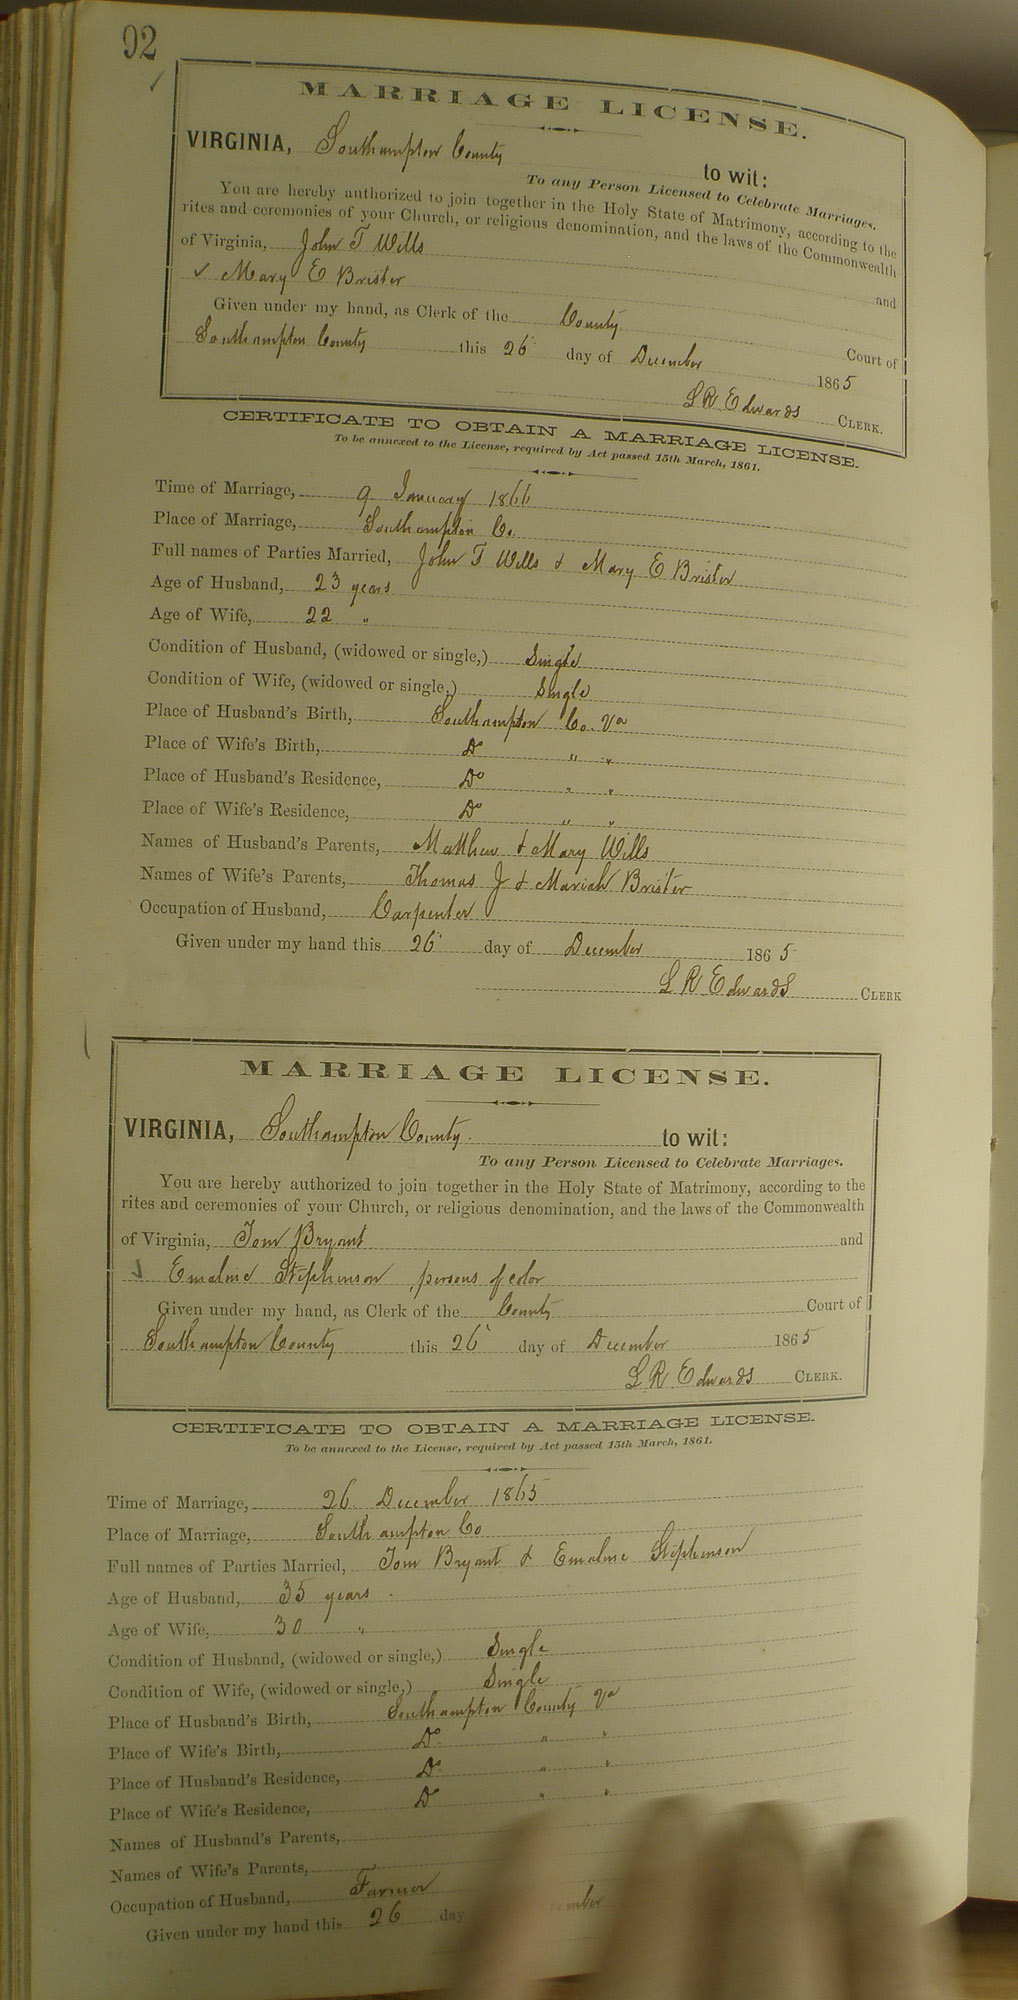 92
MARRIAGE LICENSE.
VIRGINIA, Southampton County to wit:
To any Person Licensed to Celebrate Marriages.
You are hereby authorized to join together in the Holy State of Matrimony, according to the
rites and ceremonies of your Church, or religious denomination, and the laws of the Commonwealth
of Virginia, John T Wills and
✓ Mary E Brister
Given under my hand, as Clerk of the County Court of
Southampton County this 26 day of December 1865
L R Edwards CLERK.
CERTIFICATE TO OBTAIN A MARRIAGE LICENSE.
To be annexed to the License, required by Act passed 15th March, 1861.
Time of Marriage, 9 January 1866
Place of Marriage, Southampton Co.
Full names of Parties Married, John T Wills & Mary E Brister
Age of Husband, 23 years
Age of Wife, 22 "
Condition of Husband, (widowed or single,) Single
Condition of Wife, (widowed or single,) Single
Place of Husband's Birth, Southampton Co. Va
Place of Wife's Birth, Do " "
Place of Husband's Residence, Do " "
Place of Wife's Residence, Do " "
Names of Husband's Parents, Matthew & Mary Wills
Names of Wife's Parents, Thomas J & Mariah Brister
Occupation of Husband, Carpenter
Given under my hand this 26 day of December 1865
L R Edwards CLERK
MARRIAGE LICENSE.
VIRGINIA, Southampton County to wit:
To any Person Licensed to Celebrate Marriages.
You are hereby authorized to join together in the Holy State of Matrimony, according to the
rites and ceremonies of your Church, or religious denomination, and the laws of the Commonwealth
of Virginia, Tom Bryant and
✓ Emaline Stephenson, persons of color
Given under my hand, as Clerk of the County Court of
Southampton County this 26 day of December 1865
L R Edwards CLERK.
CERTIFICATE TO OBTAIN A MARRIAGE LICENSE.
To be annexed to the License, required by Act passed 15th March, 1861.
Time of Marriage, 26 December 1865
Place of Marriage, Southampton Co
Full names of Parties Married, Tom Bryant & Emaline Stephenson
Age of Husband, 35 years
Age of Wife, 30 "
Condition of Husband, (widowed or single,) Single
Condition of Wife, (widowed or single,) Single
Place of Husband's Birth, Southampton County Va
Place of Wife's Birth, Do " "
Place of Husband's Residence, Do " "
Place of Wife's Residence, Do " "
Names of Husband's Parents,
Names of Wife's Parents,
Occupation of Husband, Farmer
Given under my hand this 26 day